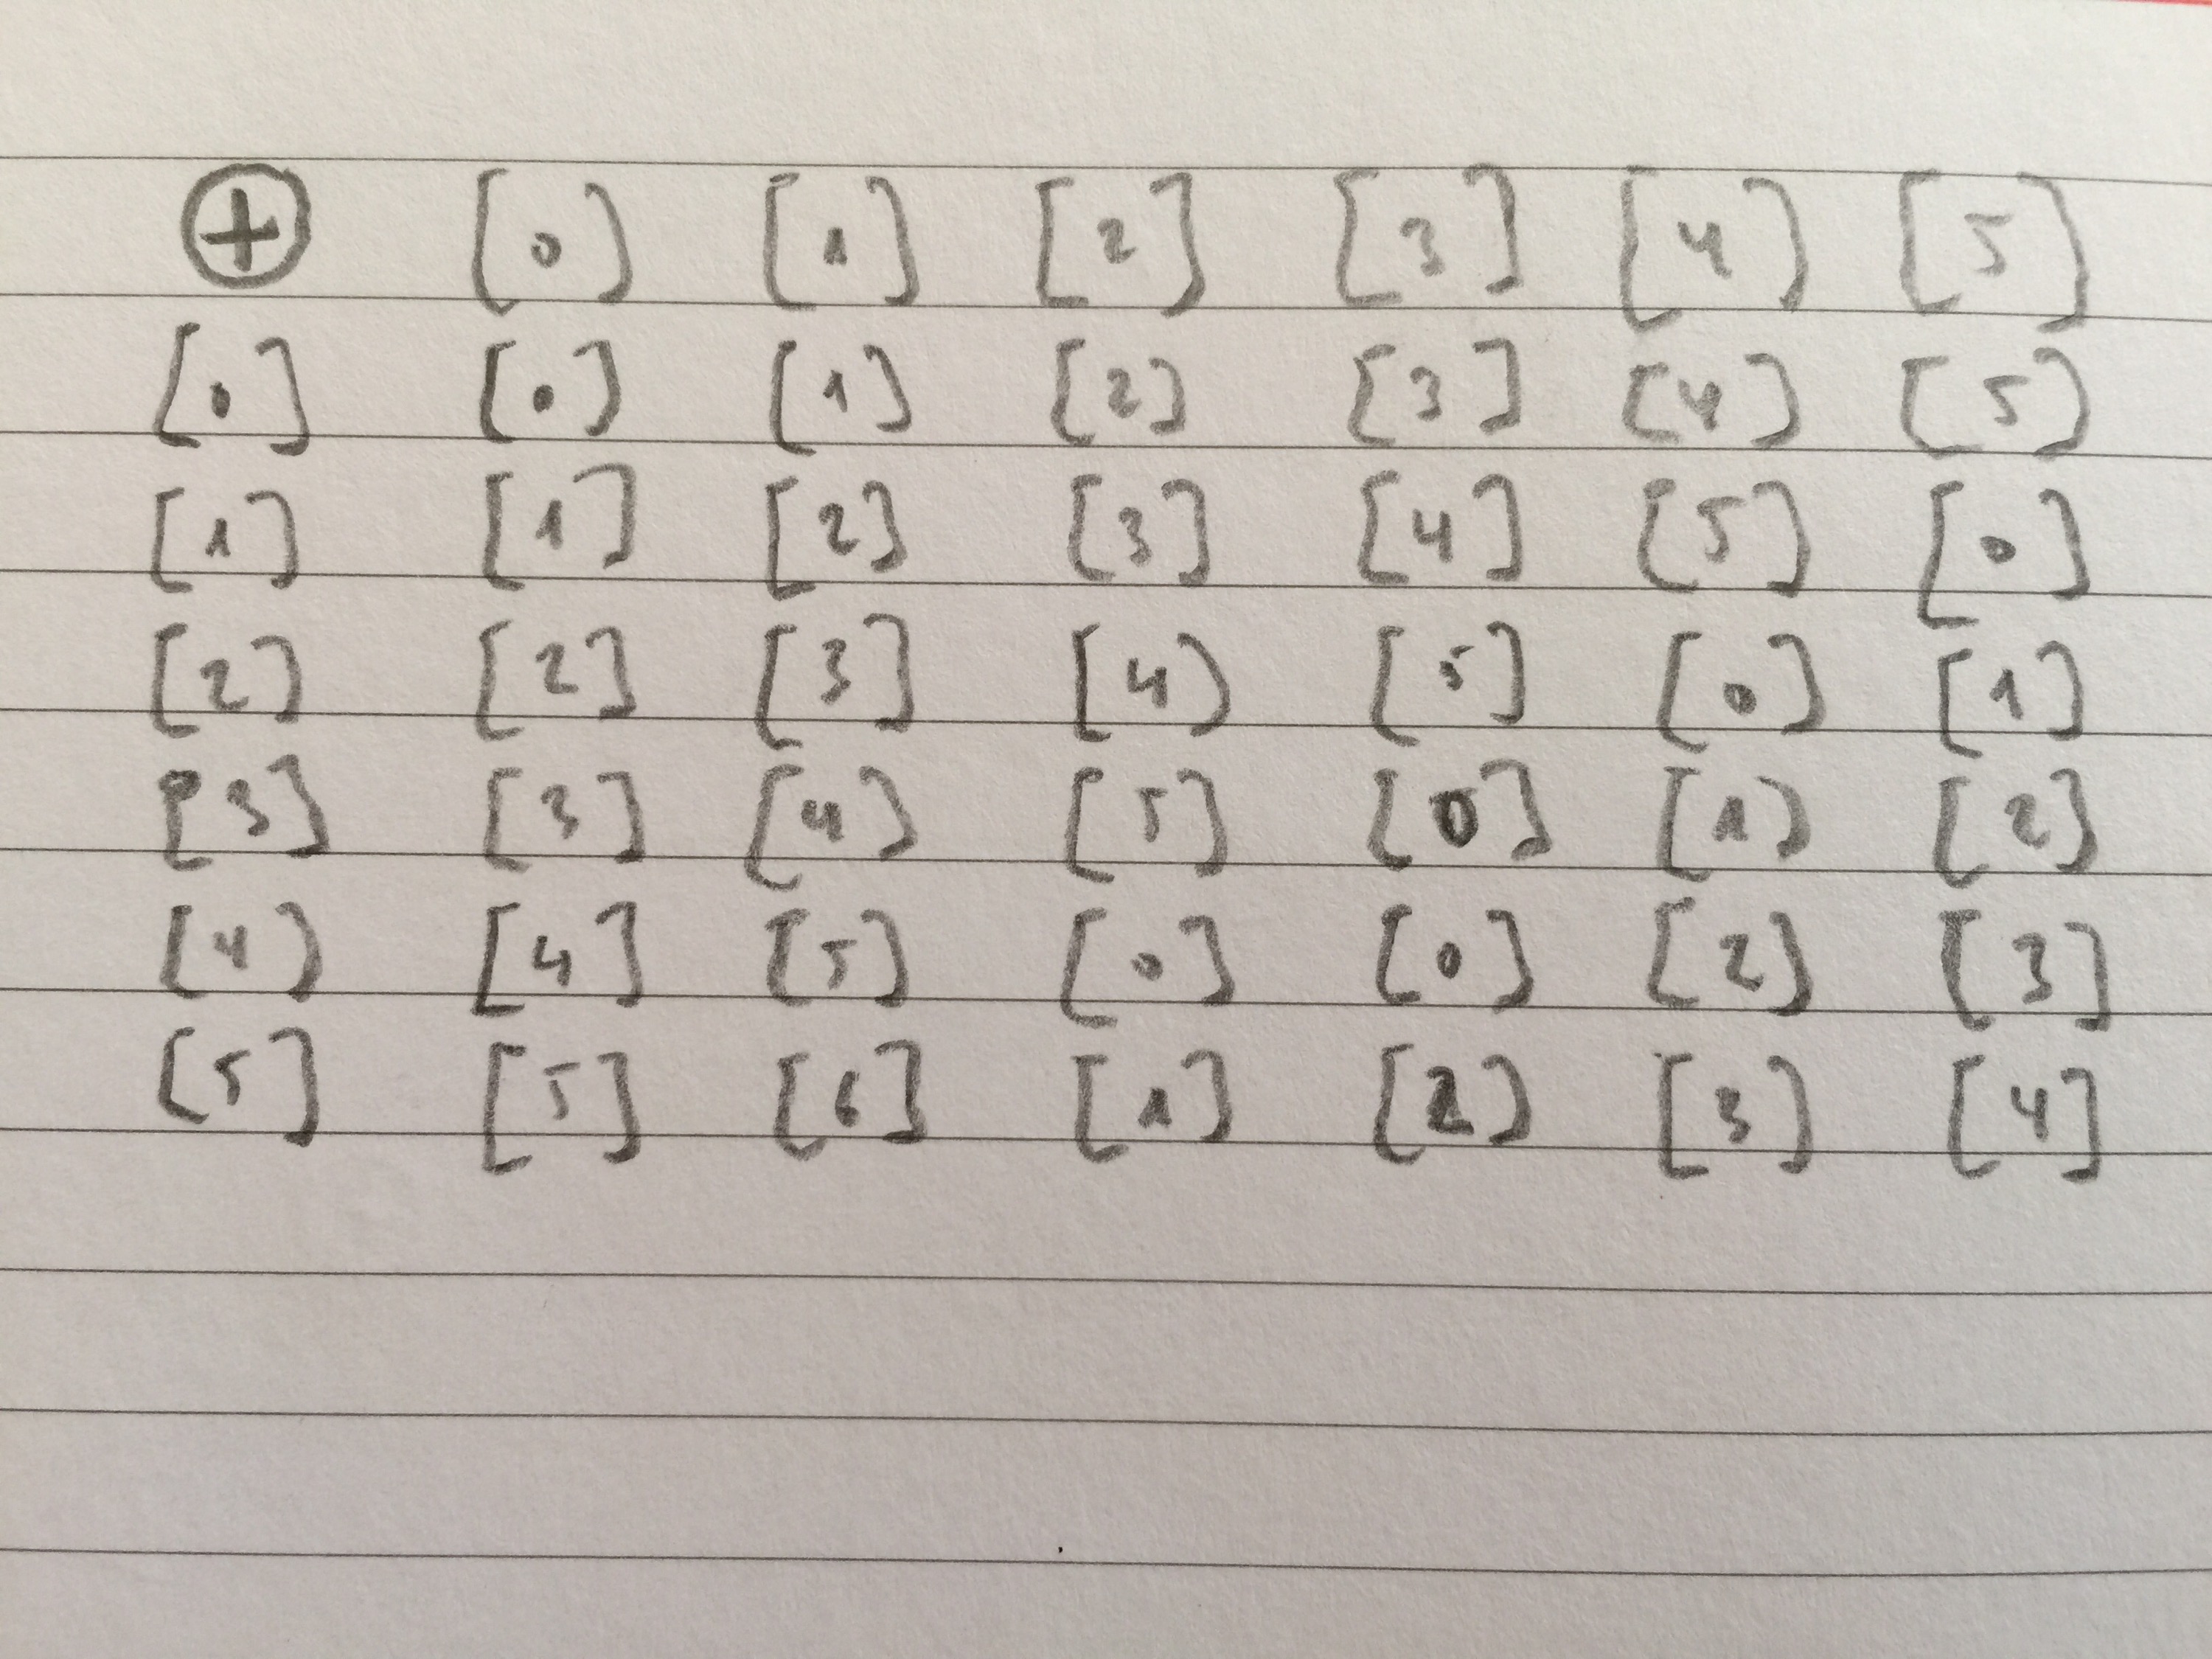 ⊕ [0] [1] [2] [3] [4] [5]
[0] [0] [1] [2] [3] [4] [5]
[1] [1] [2] [3] [4] [5] [0]
[2] [2] [3] [4] [5] [0] [1]
[3] [3] [4] [5] [0] [1] [2]
[4] [4] [5] [0] [0] [2] [3]
[5] [5] [6] [1] [2] [3] [4]